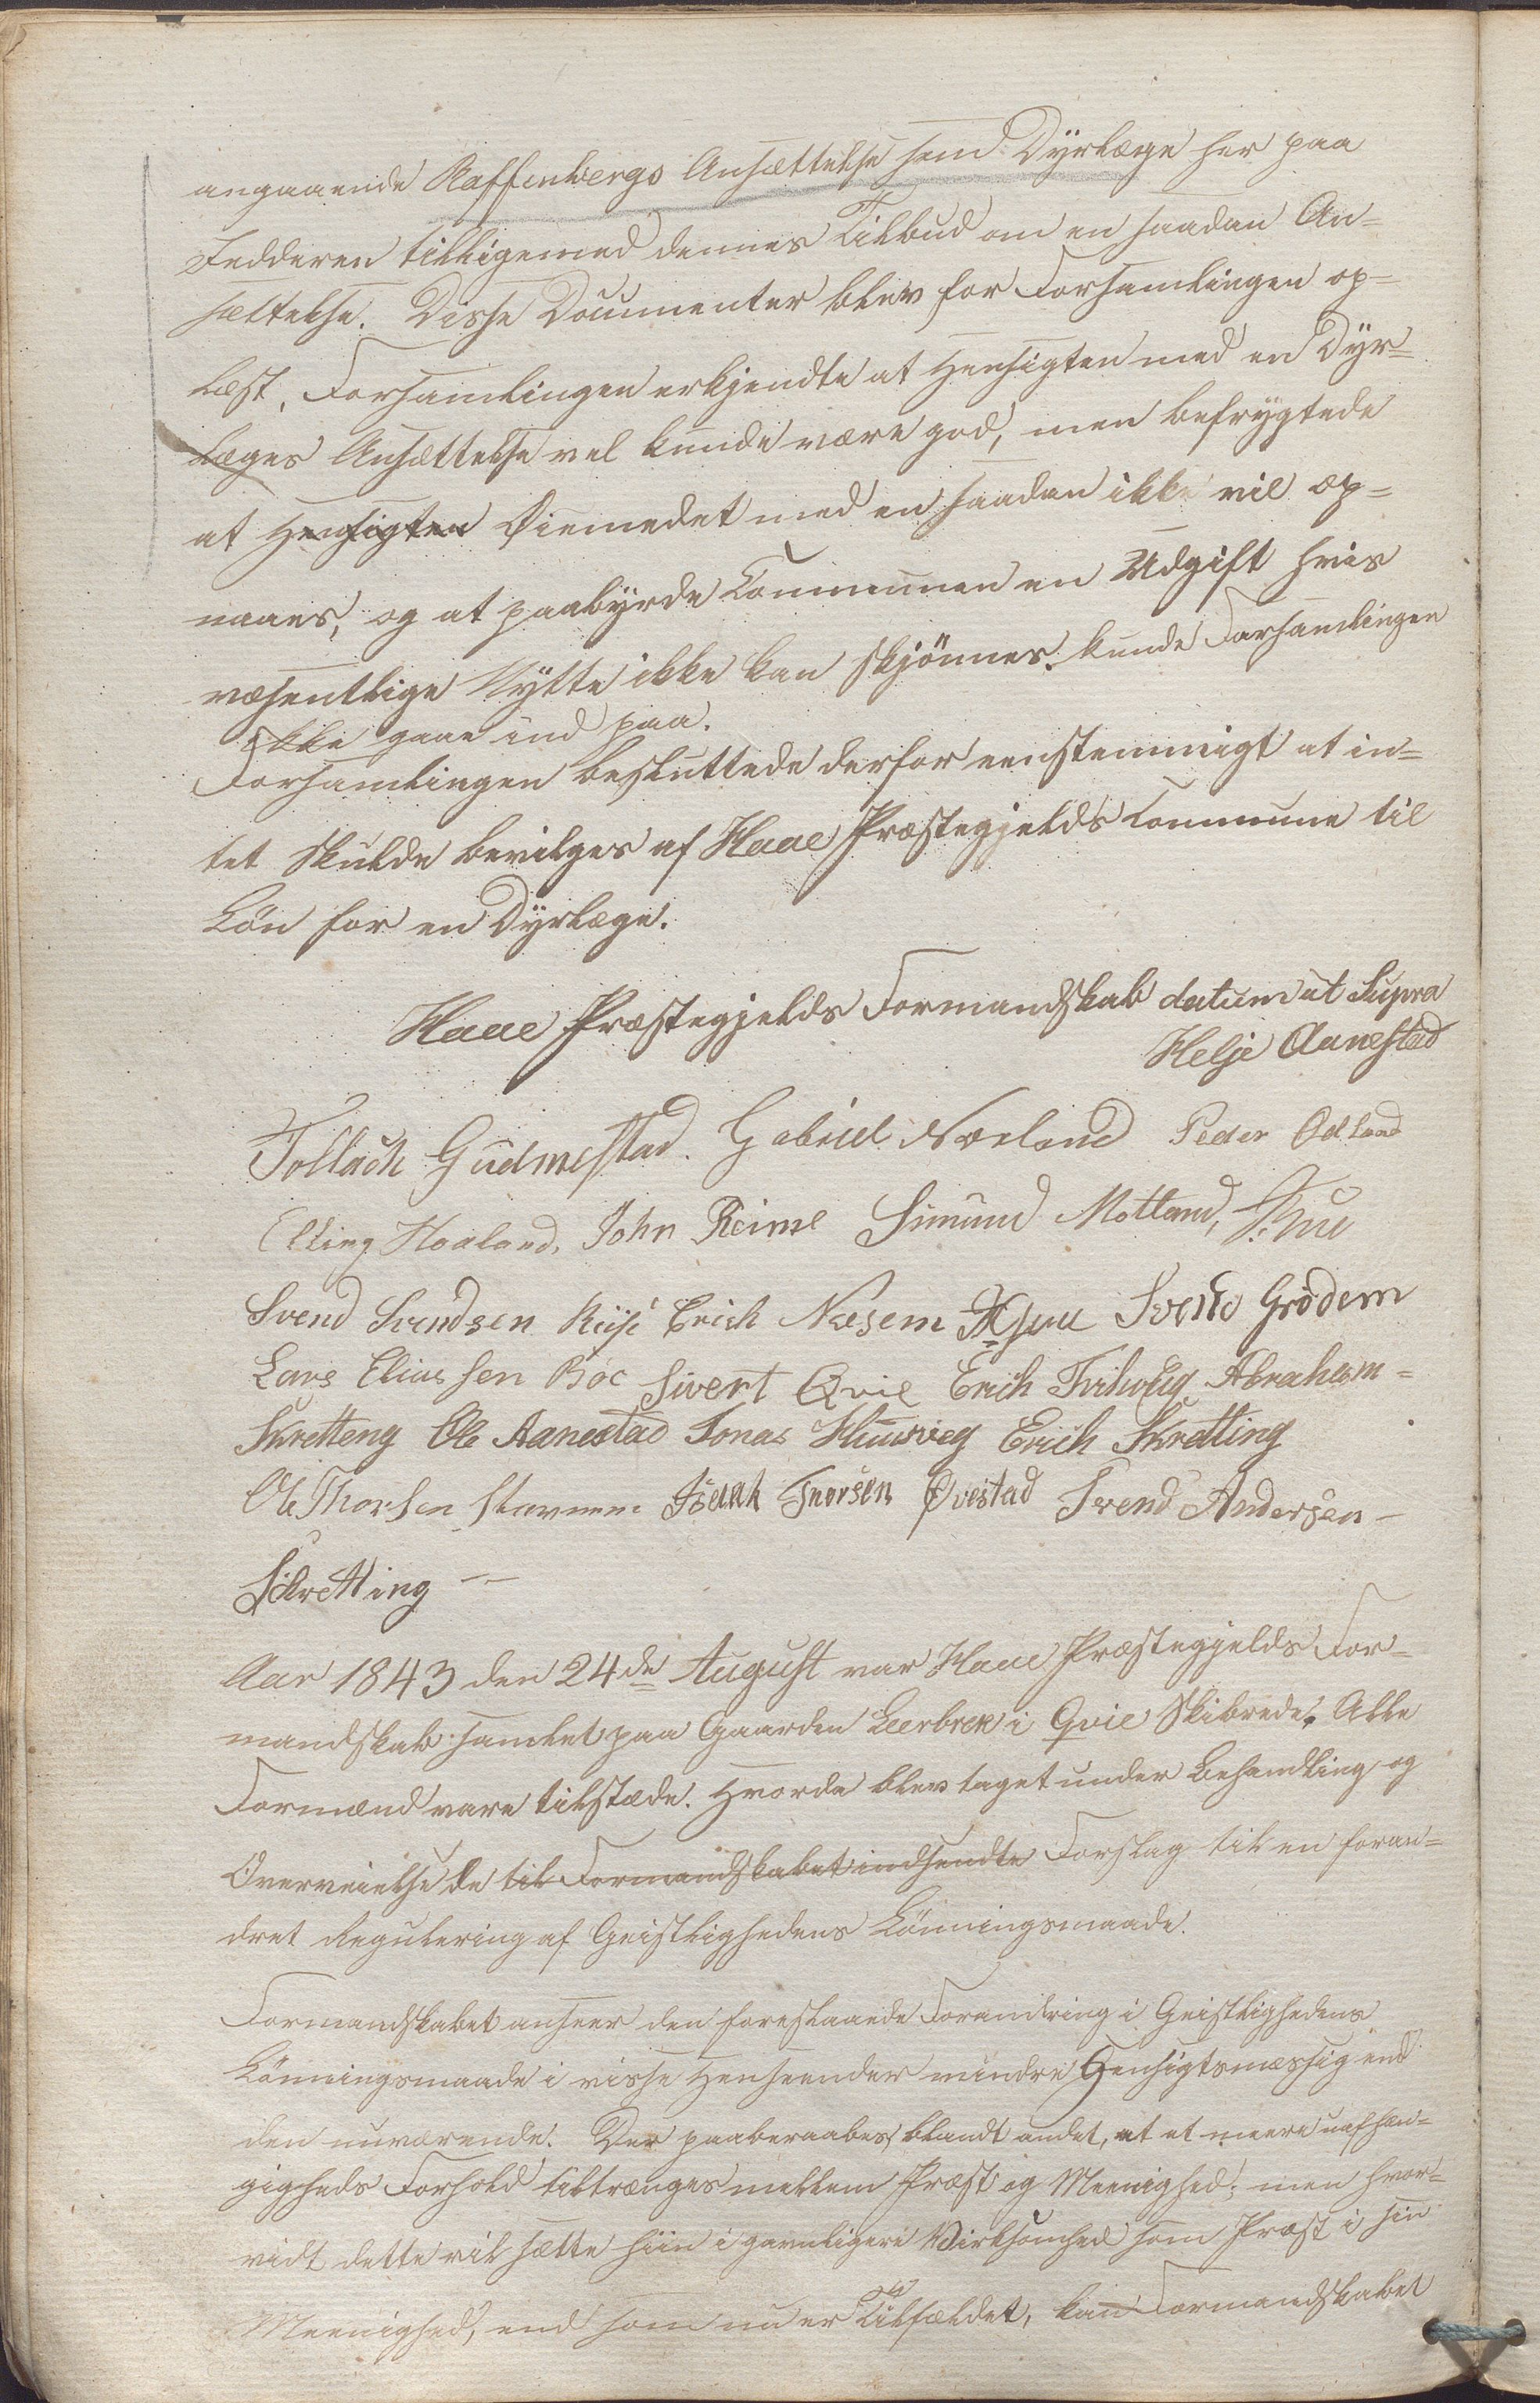 angaaende Raffenbergs Ansættelse som Dyrlæge her paa
Jedderen tilligemed dennes Tilbud om en saadan An-
sættelse. Disse Documenter blev for Forsamlingen op-
læst. Forsamlingen erkjendte at Hensigten med en Dyr-
læges Ansættelse vel kunde være god, men befrygtede
at Hensigten Øiemedet med en saadan ikke vil op-
naaes, og at paabyrde Communen en Udgift hvis
væsentlige Nytte ikke kan skjönnes kunde Forsamlingen
ikke gaae ind paa.
Forsamlingen besluttede derfor eenstemmigt at in-
tet skulde bevilges af Haae Præstegjelds Commune til
Løn for en Dyrlæge.
Haae Præstegjelds Formandskab datum ut Supra
Helje Aanestad
Tollach Gudmestad. Gabriel Nærland Peder Odland
Elling Hoaland. John Reime Simund Motland,
Svend Svendsen Riise Erich Næsem Svend Grödem
Lars Eliassen Boe Sivert Qvie Erich Abraham-
Skretteng Ole Aanestad Jonas Erich Skretting
Ole Thorsen Stavnem Isaak Thorsen Øvestad Svend Andersen-
Skretting -
Aar 1843 den 24de August var Haae Præstegjelds For-
mandskab samlet paa Gaarden Leerbrek i Qvie Skibrede. Alle
Formænd vare tilstæde. Hvorda blev taget under Behandling og
Overveielse de til Formandskabet indsendte Forslag til en foran-
dret Regulering af Geistlighedens Lönningsmaade.
Formandskabet anseer den foreslaaede Forandring i Geistlighedens
Lönningsmaade i visse Henseender mindre Hensigtsmæssig end
den nuværende. Der paaberaabes blandt andet, at et meere uafhæn-
gigheds Forhold tiltrænges mellem Præst og Meenighed; men hvor-
vidt dette vil sætte hiin i gavnligere Virksomhed som Præst i sin
Meenighed, end som nu er Tilfældet, kan Formandskabet